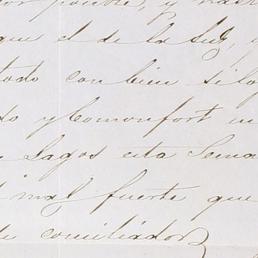 posible, y
que el de la Sud, y
todo con buen
y Comonfort en
Lagos esta Sema
mas fuerte que
conciliador